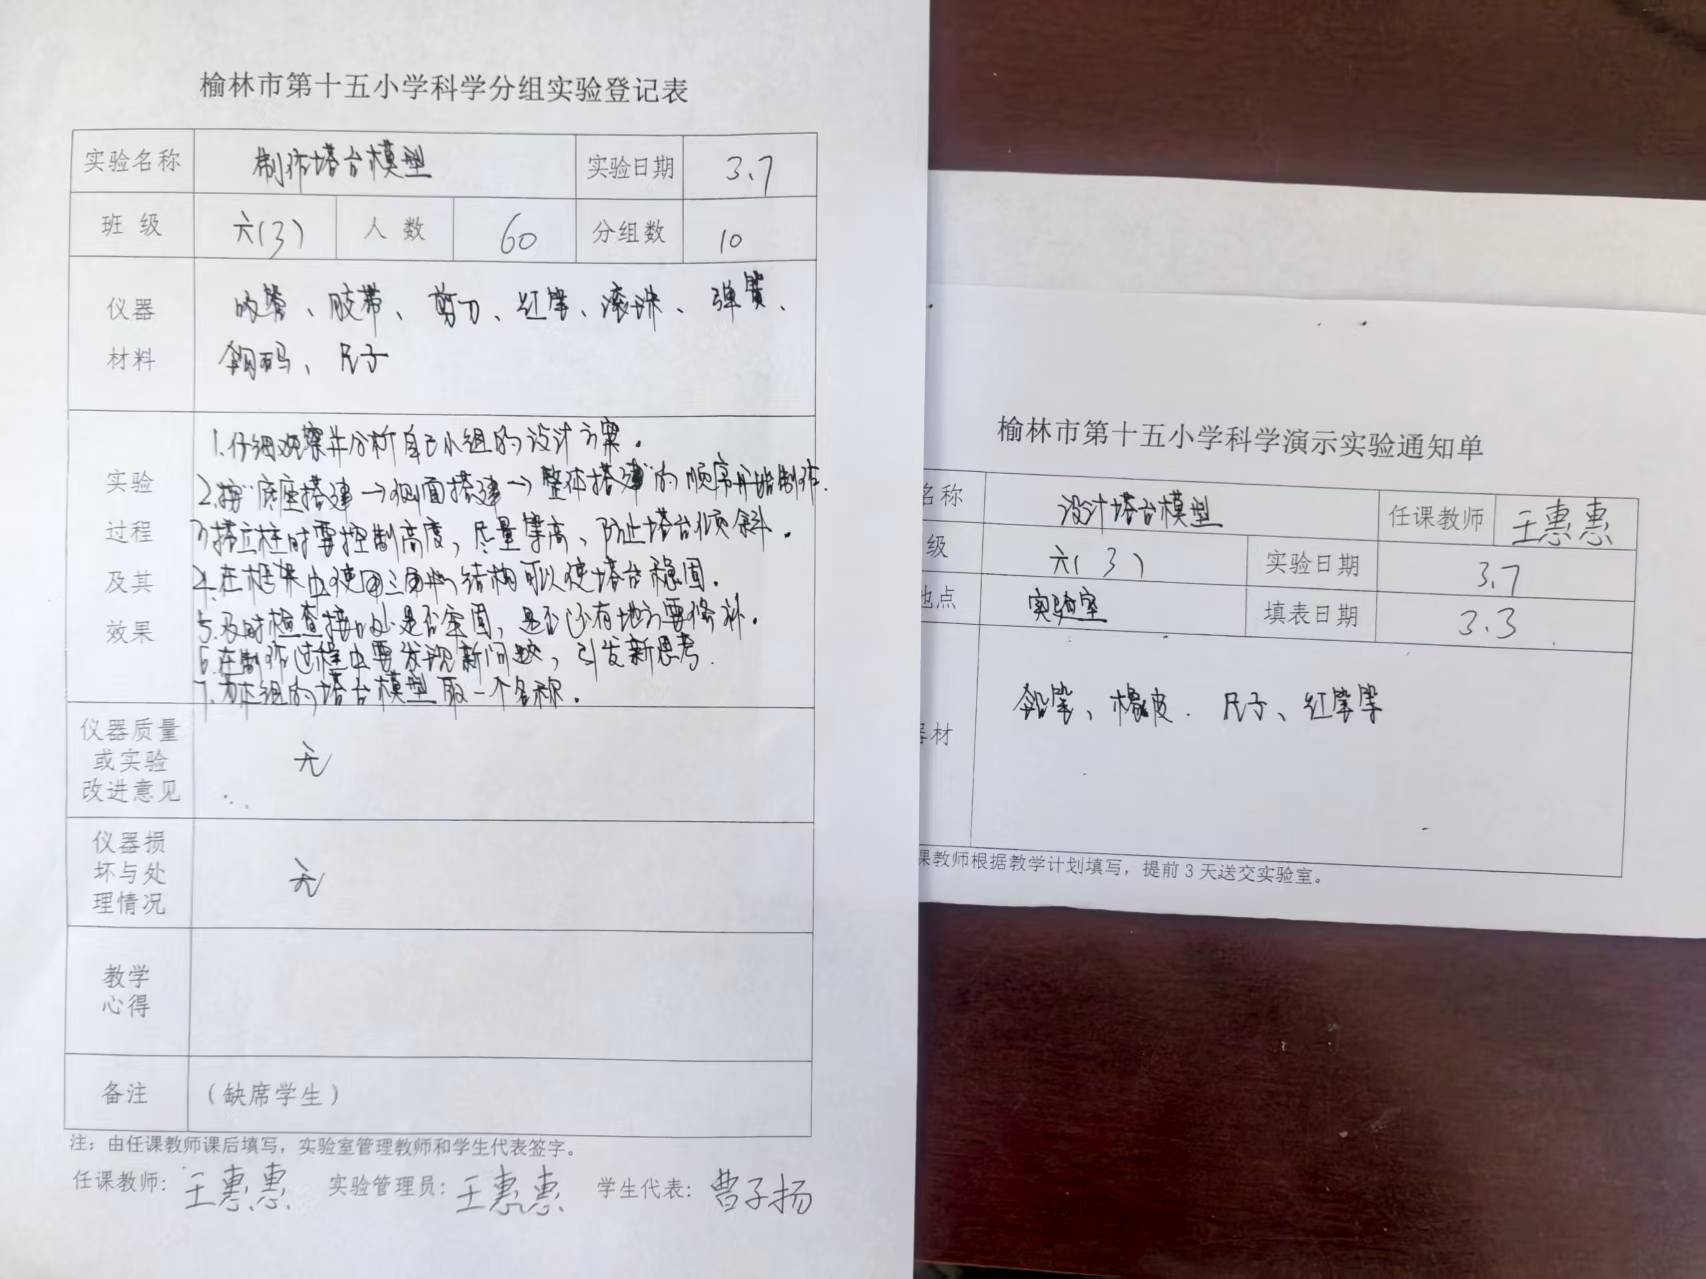 榆林市第十五小学科学分组实验登记表
实验名称 制作塔台模型 实验日期 3.7
班 级 六(3) 人 数 60 分组数 10
仪器 吸管、胶带、剪刀、红笔、滚珠、弹簧、
材料 钩码、尺子
1.仔细观察并分析自己小组的设计方案。
实验 2.按“底座搭建→侧面搭建→整体搭建”的顺序开始制作.
过程 3.搭立柱时要控制高度,尽量等高,防止塔台倾斜。
及其 4.在框架中使用三角形结构可以使塔台稳固。
效果 5.及时检查接口处是否牢固,是否还有地方要修补。
6.在制作过程中要发现新问题,引发新思考.
7.为本组的塔台模型取一个名称。
仪器质量
或实验 无
改进意见
仪器损
坏与处 无
理情况
教学
心得
备注 (缺席学生)
注:由任课教师课后填写,实验室管理教师和学生代表签字。
任课教师:王惠惠 实验管理员:王惠惠 学生代表:曹子扬
榆林市第十五小学科学演示实验通知单
名称 设计塔台模型 任课教师 王惠惠
级 六(3) 实验日期 3.7
地点 实验室 填表日期 3.3
铅笔、橡皮.尺子、红笔等
器材
课教师根据教学计划填写,提前3天送交实验室。